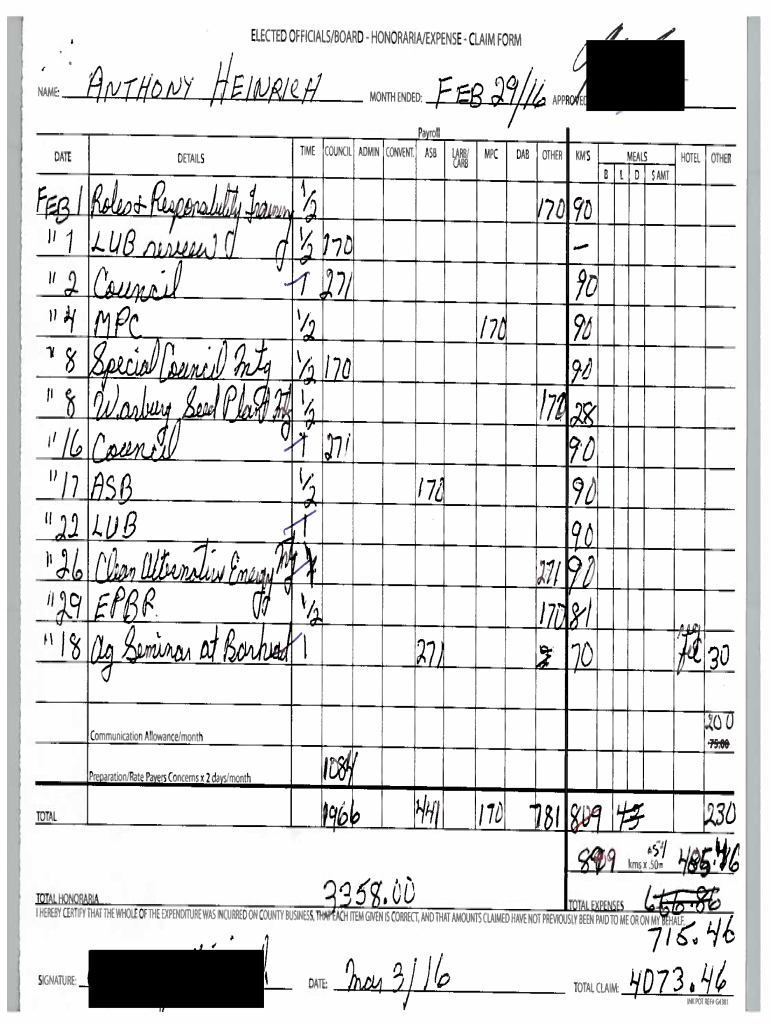 ELECTED OFFICIALS/BOARD - HONORARIA/EXPENSE - CLAIM FORM
NAME: ANTHONY HEINRICH MONTH ENDED: FEB 29/16 APPROVED
Payroll
DATE DETAILS TIME COUNCIL ADMIN CONVENT. ASB LARB/CARB MPC DAB OTHER KM'S MEALS HOTEL OTHER
B L D $ AMT
FEB 1 Roles & Responsability Training 1/2 170 90
" 1 LUB review 1/2 170 –
" 2 Council 1 271 90
" 4 MPC 1/2 170 90
" 8 Special Council Mtg 1/2 170 90
" 8 Warburg Seed Plant Mtg 1/2 170 28
" 16 Council 1 271 90
" 17 ASB 1/2 170 90
" 22 LUB 1 90
" 26 Clean Alternative Energy Mtg 1 271 90
" 29 EPBR 1/2 170 81
" 18 Ag Seminar at Barhead 1 271 70 30
200
Communication Allowance/month 75.00
Preparation/Rate Payers Concerns x 2 days/month 1084
TOTAL 1966 441 170 781 809 230
kms x .50= .54 485.46
TOTAL HONORARIA 3358.00 TOTAL EXPENSES
I HEREBY CERTIFY THAT THE WHOLE OF THE EXPENDITURE WAS INCURRED ON COUNTY BUSINESS, THAT EACH ITEM GIVEN IS CORRECT, AND THAT AMOUNTS CLAIMED HAVE NOT PREVIOUSLY BEEN PAID TO ME OR ON MY BEHALF.
715.46
SIGNATURE: DATE: Mar 3/16 TOTAL CLAIM: 4073.46